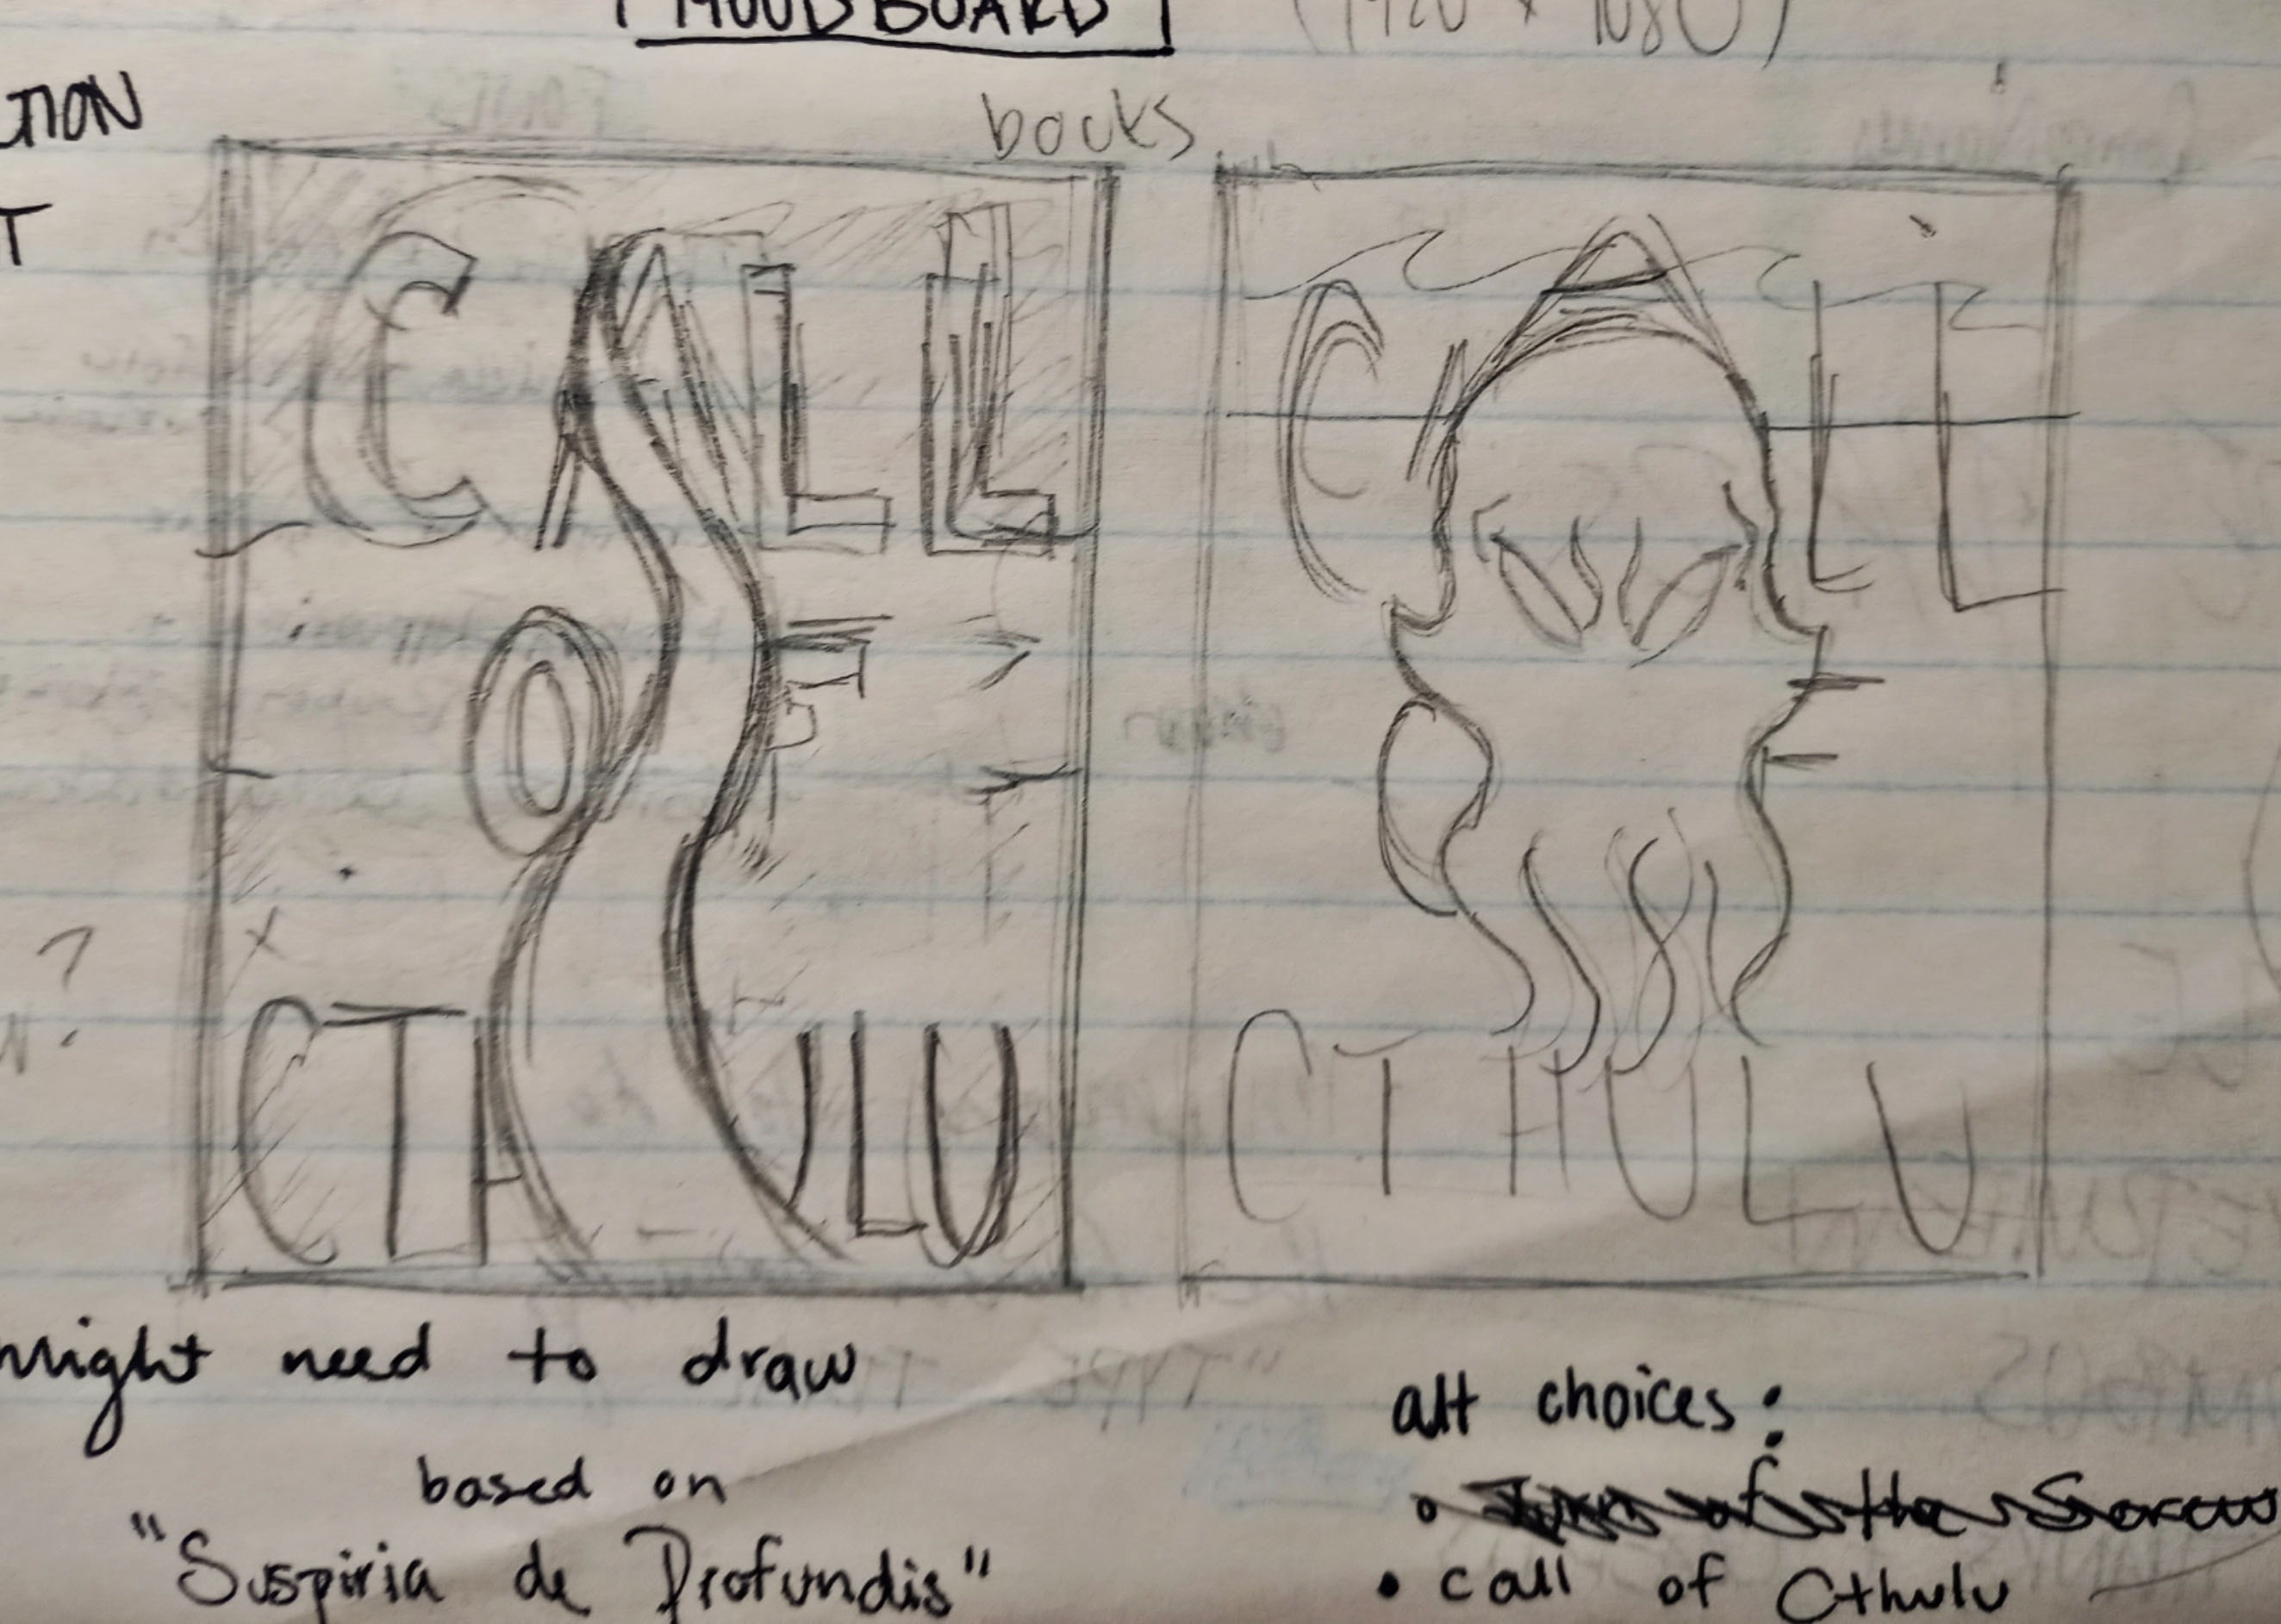 MOODBOARD (1920 x 1080)
CTION
T
books
CALL
OF
CTHULU
CALL
OF
CTHULU
?
might need to draw
based on
"Suspiria de Profundis"
alt choices:
• of the
• call of Cthulu